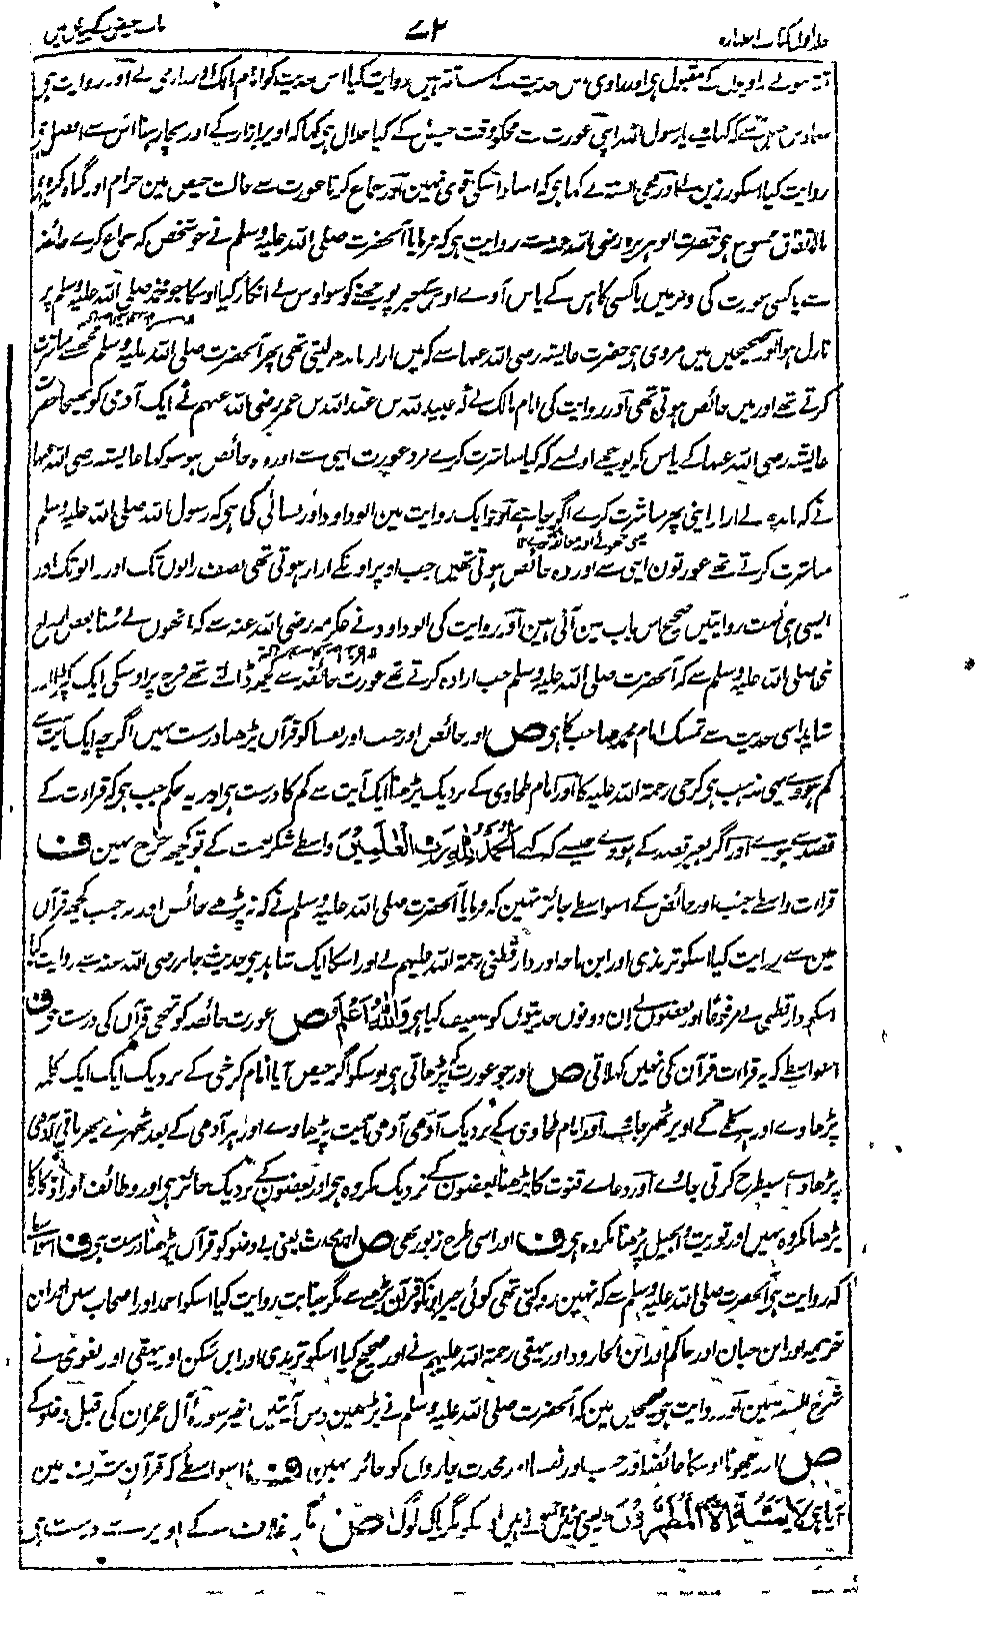 جلد اول کتاب الطہارۃ ۷۲ باب حیض کے بیان میں
ہوئے راویوں کے مقبول ہی اور راوی اس حدیث کے ستہ ہیں روایت کیا اس حدیث کو امام مالک اور دارمی نے اور روایت ہی
معاذ بن جبل سے کہ کہا میں یا رسول اللہ اپنی عورت سے مجکو وقت حیض کے کیا حلال ہی کہا کہ اوپر ازار کے اور بچار ہنا اس سے افضل ہی
روایت کیا اسکو رزین نے اور محی السنہ نے کہا ہی کہ اسناد اسکی قوی نہیں اور جماع کرنا عورت سے حالت حیض مین حرام اور گناہ کبیرہ ہی
بالاتفاق ممنوع ہی حضرت ابو ہریرہ رضی اللہ عنہ سے روایت ہی کہ فرمایا آنحضرت صلی اللہ علیہ وسلم نے جو شخص کہ جماع کرے حائضہ
سے یا کسی عورت کی دبر میں یا کسی کاہن کے پاس آوے اور غیب کی خبر پوچھنے کو سو اوس نے انکار کیا اوسکا جو محمد صلی اللہ علیہ وسلم پر
نازل ہوا اور صحیحین میں مروی ہی حضرت عایشہ رضی اللہ عنہا سے کہ میں ازار باندھ لیتی تھی پھر آنحضرت صلی اللہ علیہ وسلم مجھسے مباشرت
کرتے تھے اور میں حائض ہوتی تھی اور روایت کی امام مالک نے کہ عبید اللہ بن عبد اللہ بن عمر رضی اللہ عنہم نے ایک آدمی کو بھیجا حضرت
عایشہ رضی اللہ عنہا کے پاس کہ پوچھے اونسے کہ کیا مباشرت کرے مرد عورت اپنی سے اور وہ حائض ہو سو کہا عایشہ رضی اللہ عنہا
نے کہ باندھ لے ازار اپنی پھر مباشرت کرے اگر چاہے اور ایک روایت مین ابو داود اور نسائی کی ہی کہ رسول اللہ صلی اللہ علیہ وسلم
مباشرت کرتے تھے عورتون اپنی سے اور وہ حائض ہوتی تھیں جب اوپر اونکے ازار ہوتی تھی نصف رانوں تک اور زانو تک اور
ایسی ہی بہت روایتیں صحیح اس باب مین آئی ہین اور روایت کی ابو داود نے عکرمہ رضی اللہ عنہ سے کہ انھوں نے سُنا بعض ازواج
نبی صلی اللہ علیہ وسلم سے کہ آنحضرت صلی اللہ علیہ وسلم جب ارادہ کرتے تھے عورت حائضہ سے کچھ ڈالتے تھے فرج پر اوسکی ایک کپڑا
شاید اسی حدیث سے تمسک امام محمد صاحب کا ہی ص اور حائض اور جنب اور نفسا کو قرآن پڑھنا درست نہیں اگرچہ ایک آیت سے
کم ہووے یہی مذہب ہی کرخی رحمۃ اللہ علیہ کا اور امام طحاوی کے نزدیک پڑھنا ایک آیت سے کم کا درست ہی اور یہ حکم جب ہی کہ قراءت کے
قصد سے ہووے اور اگر بغیر قصد کے ہووے جیسے کہ کہے اَلْحَمْدُ لِلّٰہِ رَبِّ الْعٰلَمِیْنَ واسطے شکر نعمت کے تو کچھ حرج نہین ف
قراءت واسطے جنب اور حائض کے اسواسطے جائز نہین کہ فرمایا آنحضرت صلی اللہ علیہ وسلم نے کہ نہ پڑھے حائض اور نہ جنب کچھ قرآن
مین سے روایت کیا اسکو ترمذی اور ابن ماجہ اور دارقطنی رحمۃ اللہ علیہم نے اور اسکا ایک شاہد ہی حدیث جابر رضی اللہ عنہ سے روایت کیا
اسکو دارقطنی نے مرفوعًا اور بعضوں نے ان دونوں حدیثوں کو ضعیف کیا ہی وَاللّٰہُ اَعْلَم ص عورت حائضہ کو تہجی قرآن کی درست ہی ف
اسواسطے کہ یہ قراءت قرآن کی نہیں کہلاتی ص اور جو عورت کہ پڑھاتی ہی ہو سکو اگر حیض آیا امام کرخی کے نزدیک ایک ایک کلمہ
پڑھاوے اور ہر کلمے کے اوپر ٹھہر جاوے اور امام طحاوی کے نزدیک آدھی آدھی آیت پڑھاوے اور ہر آدھی کے بعد ٹھہرے پھر باقی آدھی
پڑھاوے اسیطرح کرتی جاوے اور دعاے قنوت کا پڑھنا بعضون کے نزدیک مکروہ ہی اور بعضون کے نزدیک جائز ہی اور وظائف اور اذکار کا
پڑھنا مکروہ نہیں اور توریت و انجیل پڑھنا مکروہ ہی ف اور اسی طرح زبور بھی ص اور محدث یعنی بے وضو کو قرآن پڑھنا درست ہی ف اسواسطے
کہ روایت ہی آنحضرت صلی اللہ علیہ وسلم سے کہ نہین روکتی تھی کوئی چیز اونکو قرآن پڑھنے سے مگر جنابت روایت کیا اسکو احمد اور اصحاب سنن اور ابن
خزیمہ اور ابن حبان اور حاکم اور ابن الجارود اور بیہقی رحمۃ اللہ علیہم نے اور صحیح کیا اسکو ترمذی اور ابن سکن اور بیہقی اور بغوی نے
شرح السنہ مین اور روایت ہی صحیحین مین کہ آنحضرت صلی اللہ علیہ وسلم نے پڑھین دس آیتیں اخیر سورۂ آل عمران کی قبل وضو کے
ص اور چھونا اوسکا حائضہ اور جنب اور نفسا اور محدث چاروں کو جائز نہین ف اسواسطے کہ قرآن شریف مین
آیا ہی لَا یَمَسُّہٗ اِلَّا الْمُطَھَّرُوْنَ یعنی نہیں چھوتے ہیں اسکو مگر پاک لوگ ص مگر غلاف کے اوپر سے درست ہی